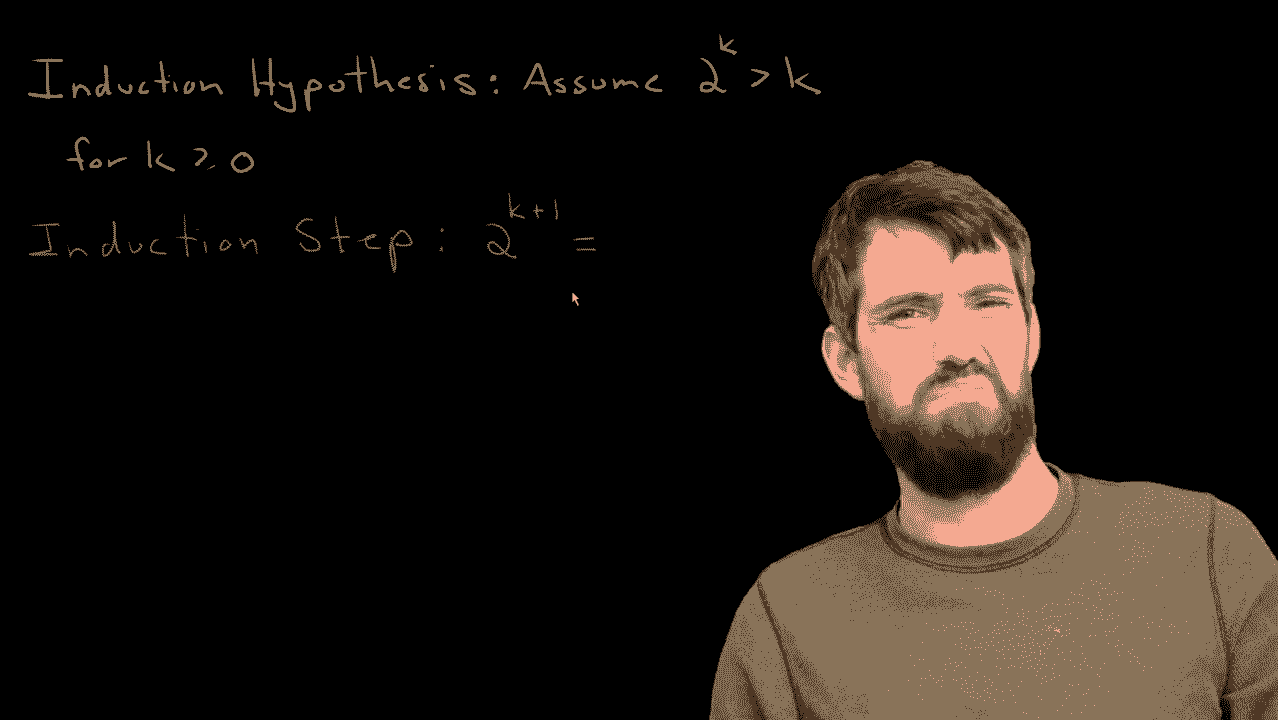 Induction Hypothesis: Assume 2^k > k
for k ≥ 0
Induction Step: 2^{k+1} =